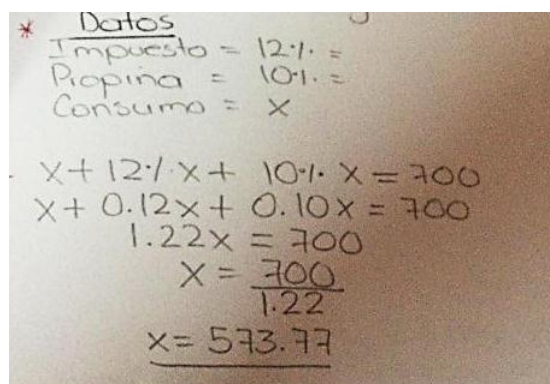 * Datos
Impuesto = 12% =
Propina = 10% =
Consumo = X
X + 12% X + 10% X = 700
X + 0.12x + 0.10x = 700
1.22x = 700
X = 700
1.22
x = 573.77